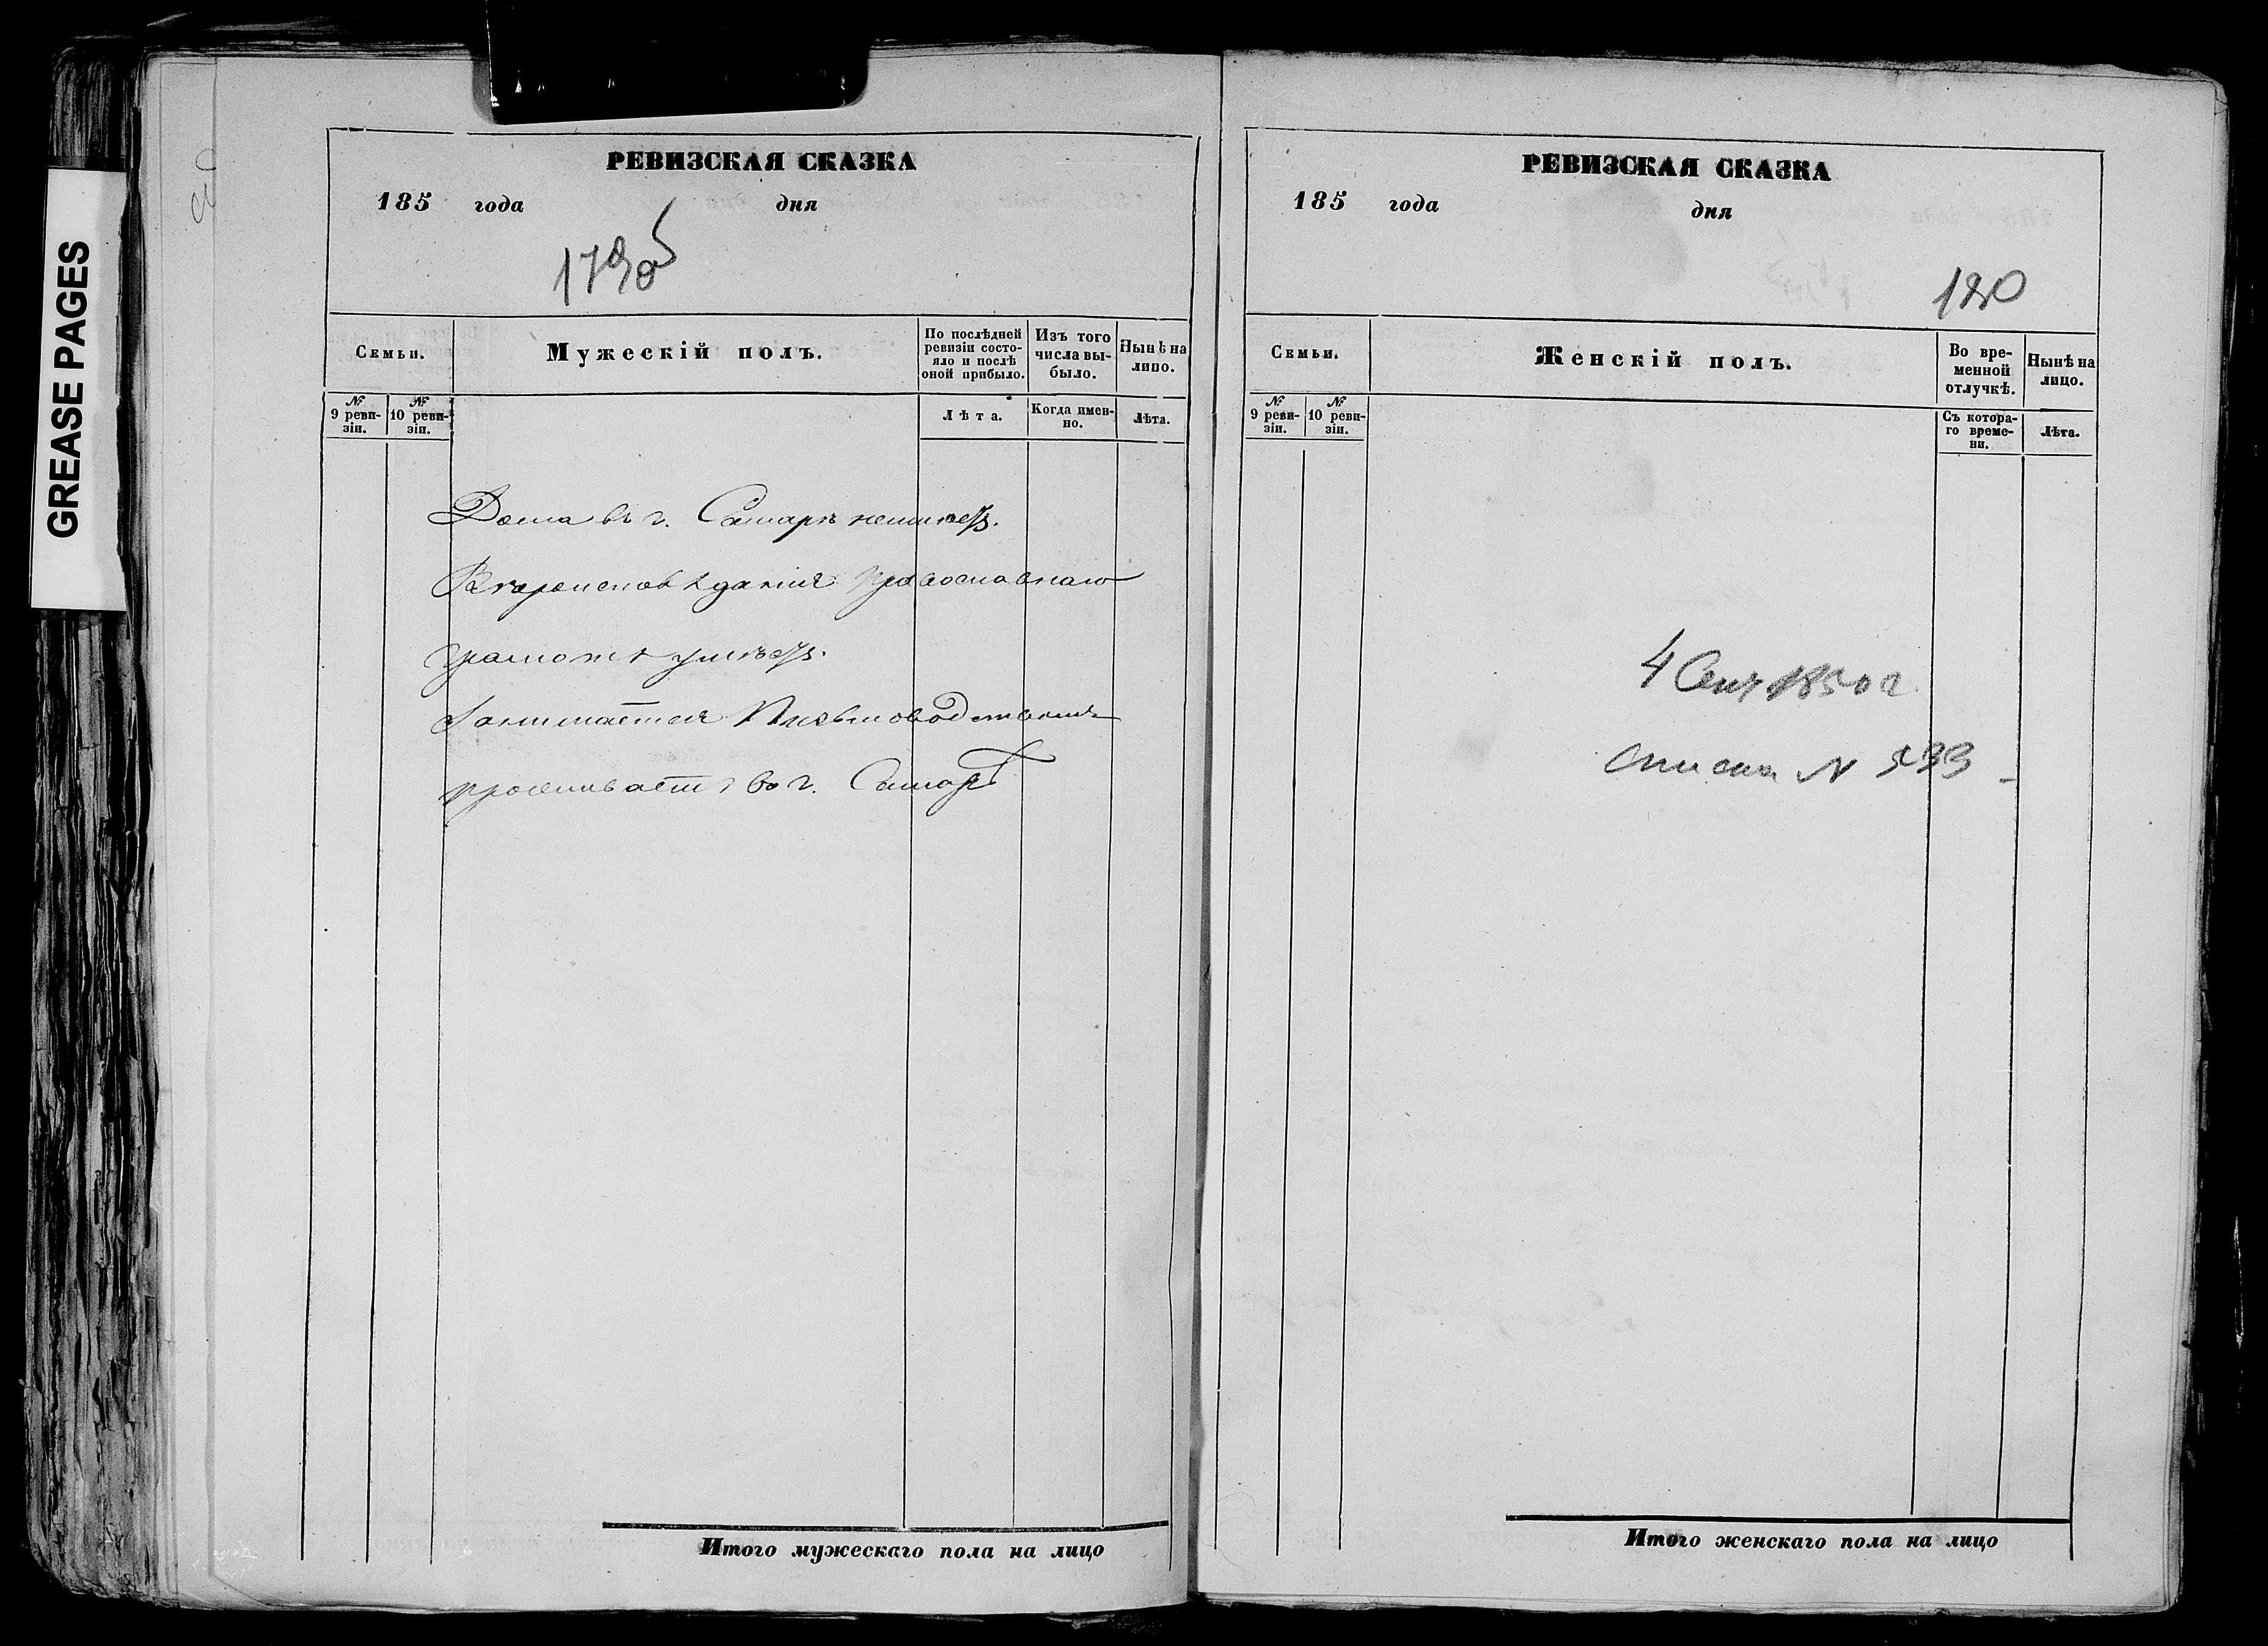 GREASE PAGES
РЕВИЗСКАЯ СКАЗКА
185 года дня
Семьи.
Мужескій полъ.
По послѣдней ревизіи состо-
яло и послѣ
оной прибыло.
Изъ того
числа вы-
было.
Нынѣ на
лицо.
№
9 реви-
зіи.
№
10 реви-
зіи.
Лѣта.
Когда имен-
но.
Лѣта.
Дома въ г. Самарѣ неимѣетъ.
Вѣроисповѣданія православнаго
грамотѣ умѣетъ.
Занимается Письмоводствомъ
проживаетъ въ г. Самарѣ
Итого мужескаго пола на лицо
РЕВИЗСКАЯ СКАЗКА
185 года дня
180
Семьи.
Женскій полъ.
Во вре-
менной
отлучкѣ.
Нынѣ на
лицо.
№
9 реви-
зіи.
№
10 реви-
зіи.
Съ котора-
го време-
ни.
Лѣта.
4 Сент 1850 г
Итого женскаго пола на лицо